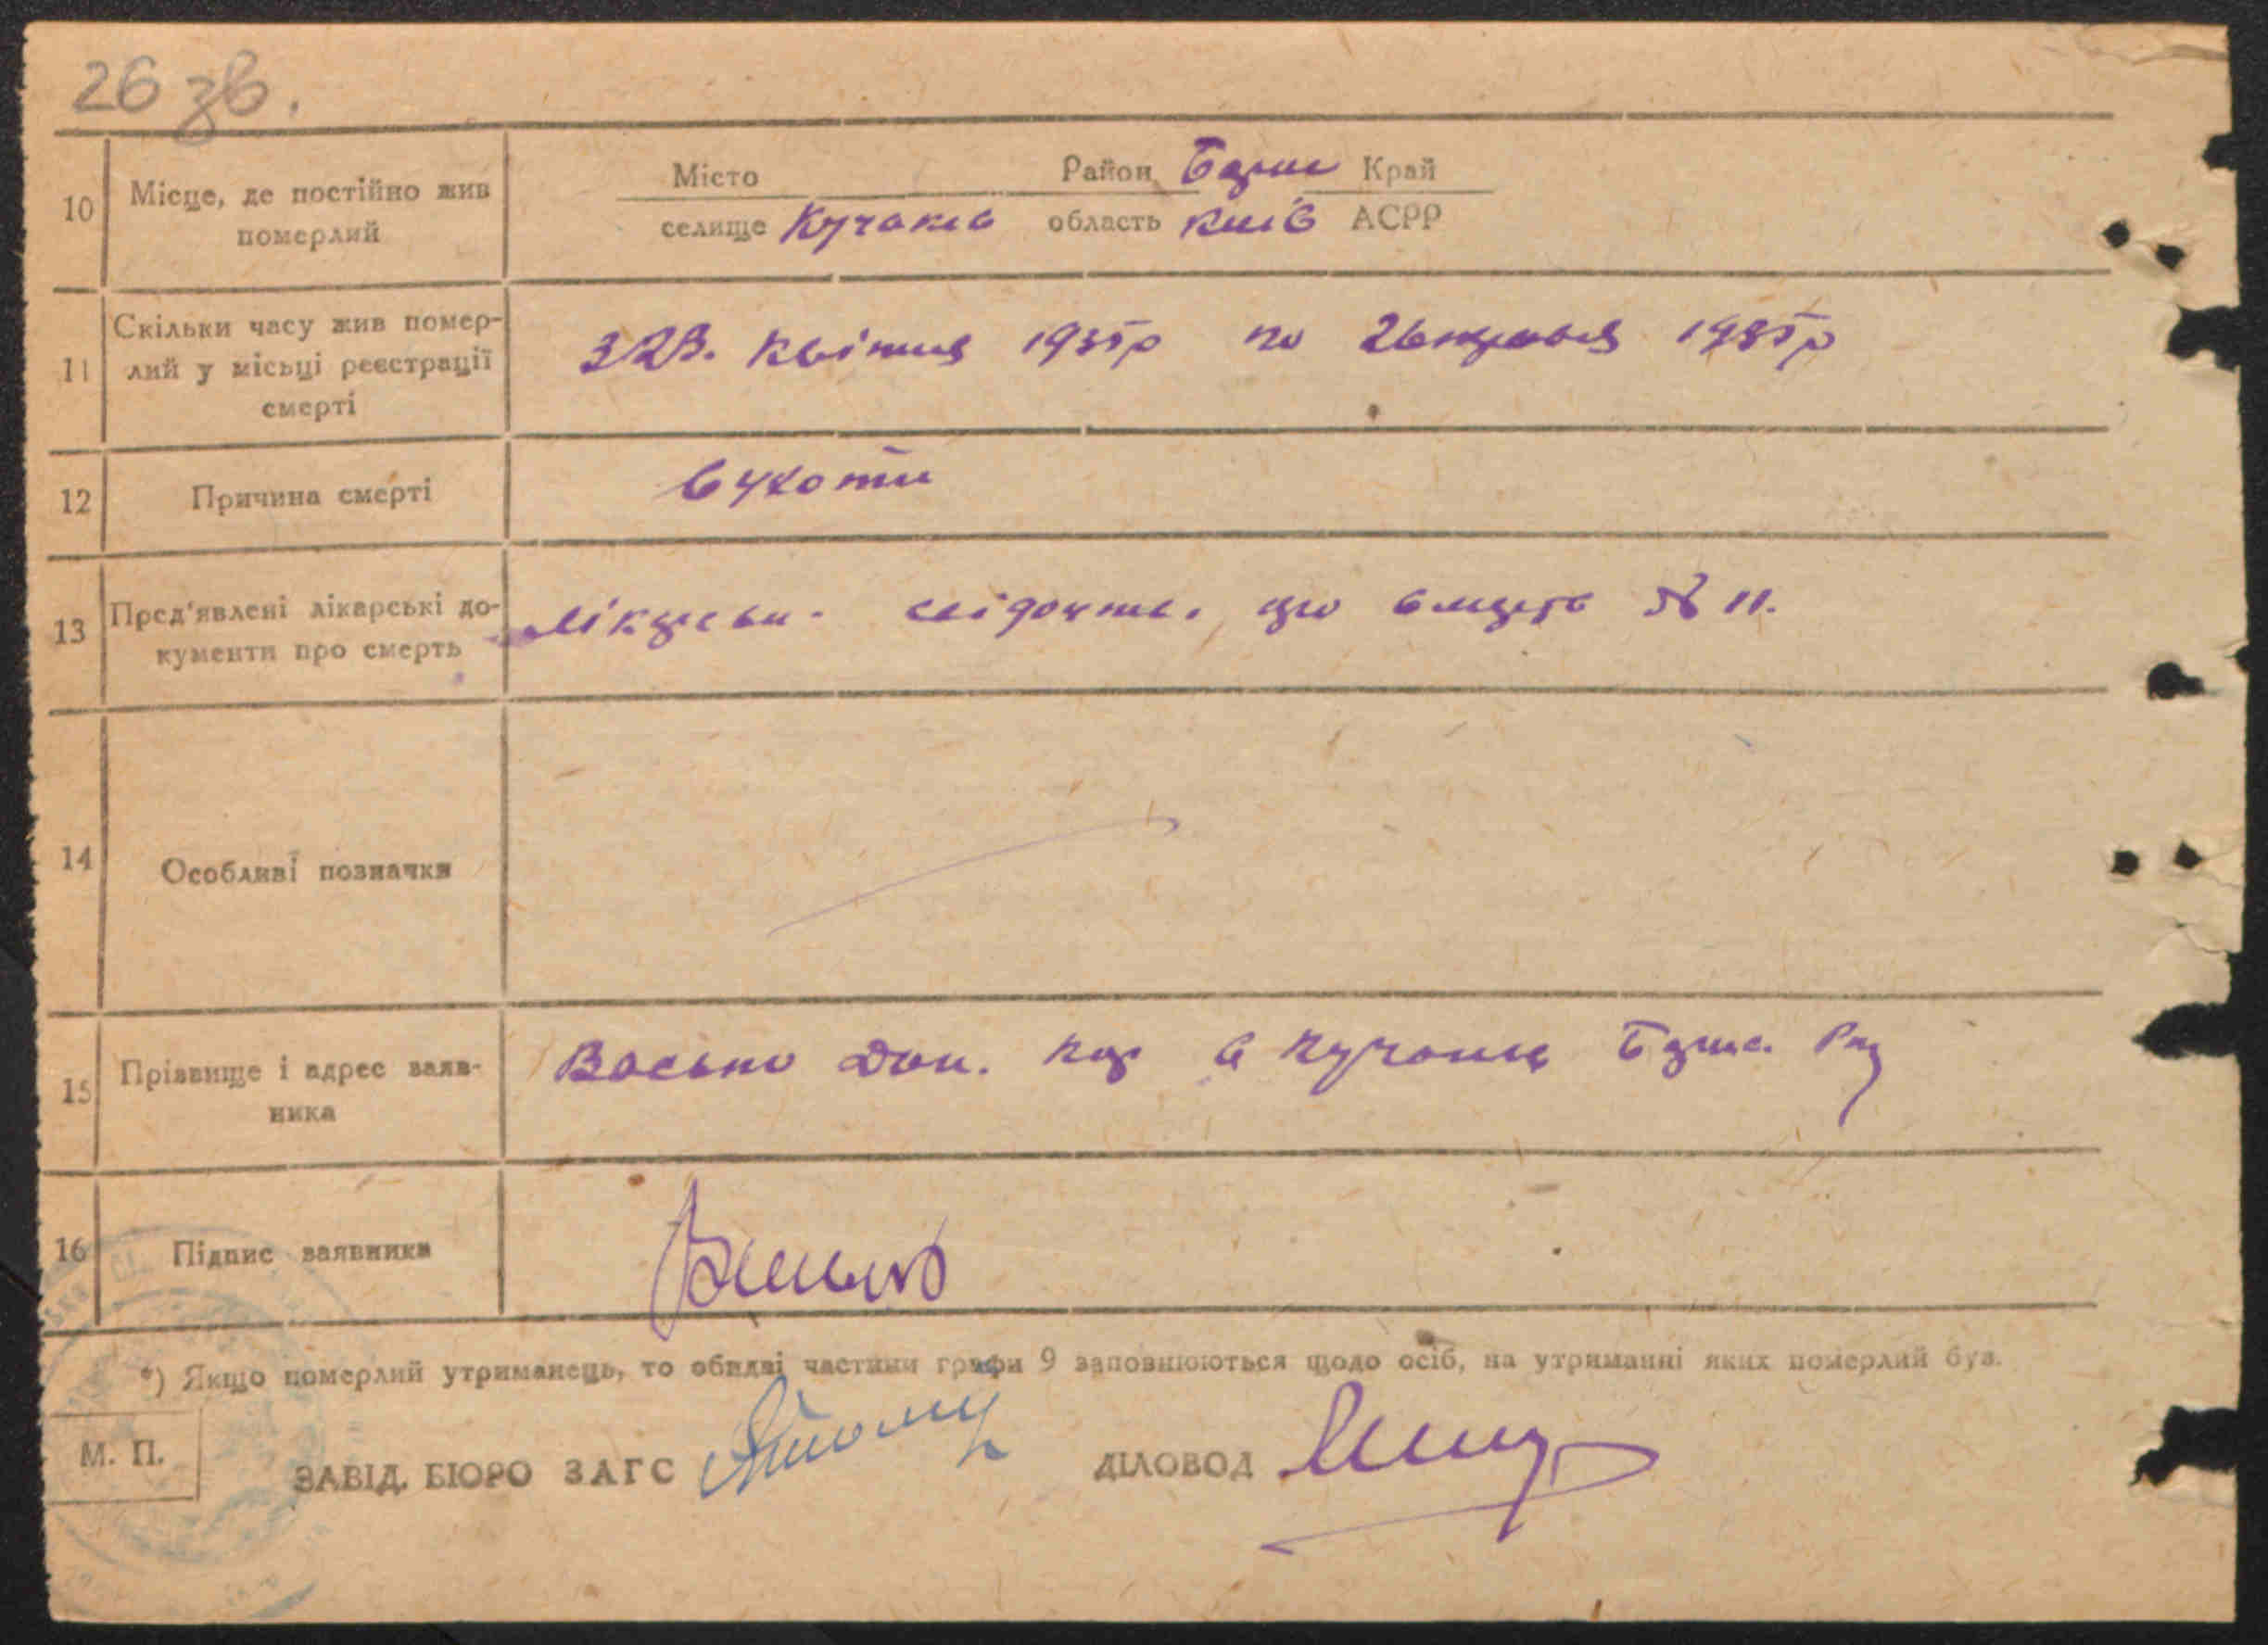 26 зв.
10 Місце, де постійно жив померлий
Місто Район Бориc Край
селище Кучаків область Київ АСРР
11 Скільки часу жив помер-
лий у місьці реєстрації
смерті
З 23. Квітня 1935р по 26 травня 1935р
12 Причина смерті
Сухоти
13 Пред'явлені лікарські до-
кументи про смерть
Лікарськ. свідочтв. № 11.
14 Особливі позначки
15 Прізвище і адрес заяв-
ника
Васько Дан. Кучаків Бориc. Рну
16 Підпис заявника
Васько
*) Якщо померлий утриманець, то обидві частини графи 9 заповнюються щодо осіб, на утриманні яких померлий був.
М. П.
ЗАВІД. БЮРО ЗАГС
ДІЛОВОД